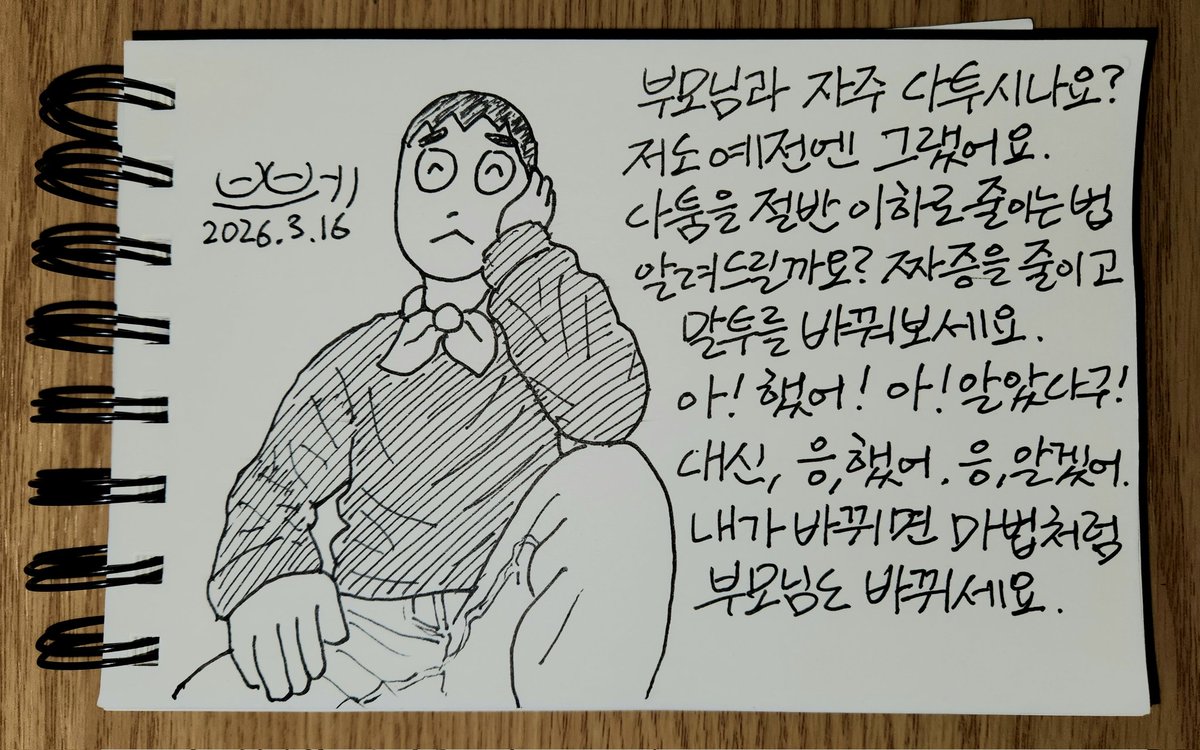 2026.3.16
부모님과 자주 다투시나요?
저도 예전엔 그랬어요.
다툼을 절반 이하로 줄이는 법
알려드릴까요? 짜증을 줄이고
말투를 바꿔보세요.
아! 했어! 아! 알았다구!
대신, 응, 했어. 응, 알겠어.
내가 바뀌면 마법처럼
부모님도 바뀌세요.